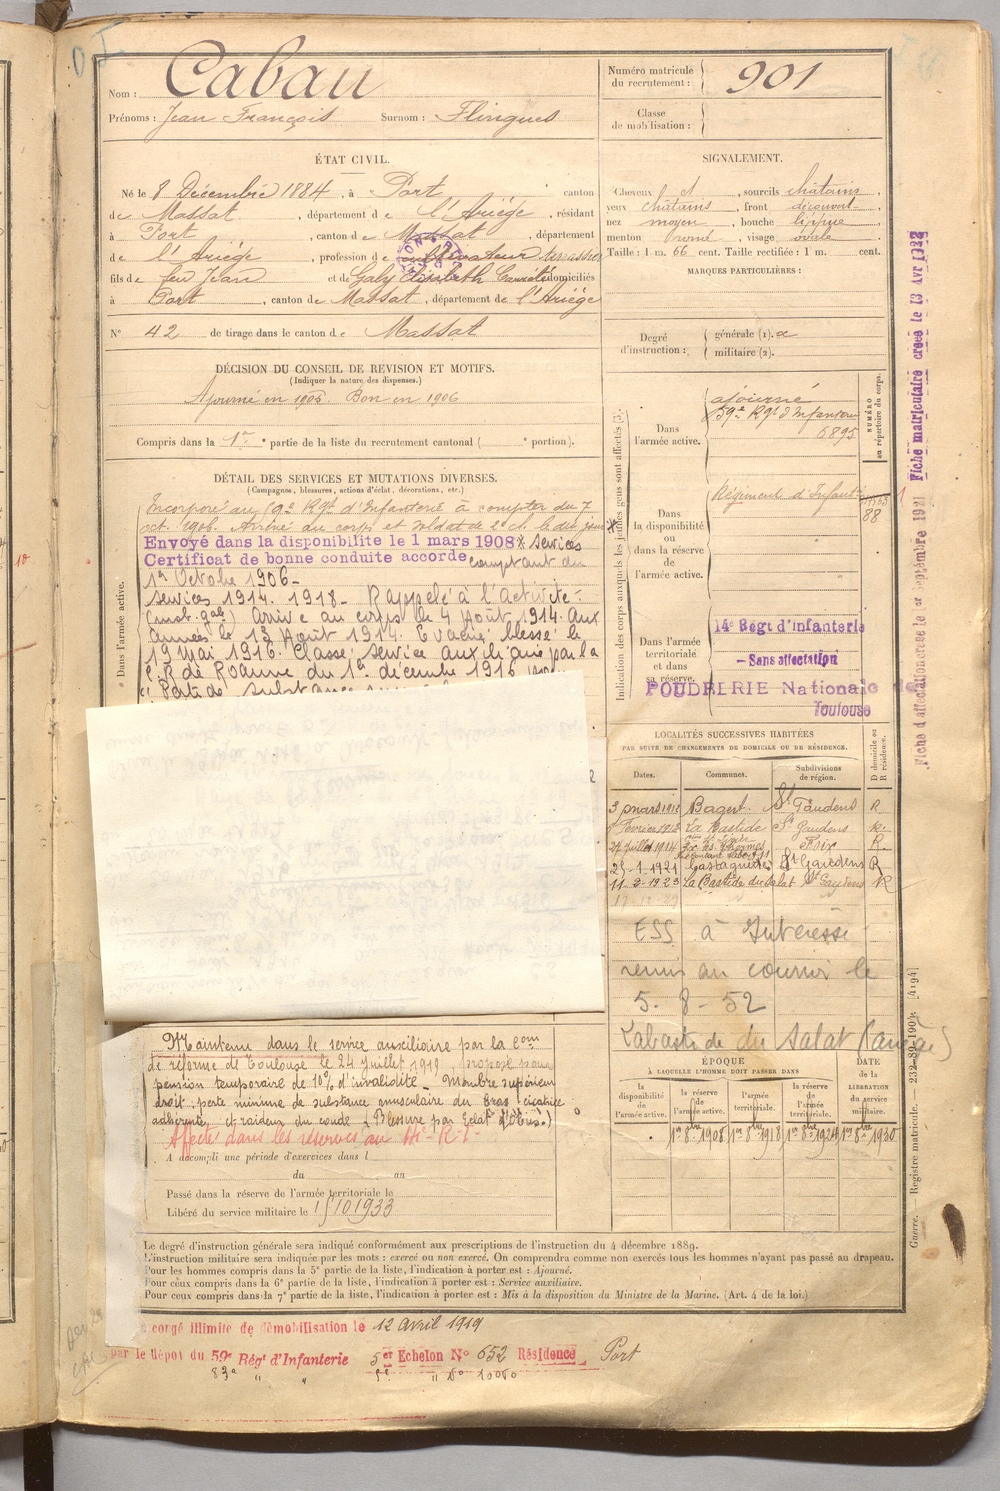 Nom : Cabau
Prénoms : Jean François Surnom : Flingues
Numéro matricule du recrutement : 901
Classe de mobilisation :
ÉTAT CIVIL.
Né le 8 Décembre 1884, à Port canton
de Massat, département de l'Ariège, résidant
à Port, canton de Massat, département
de l'Ariège, profession de cultivateur
fils de feu Jean et de Galy Elisabeth domiciliés
à Port, canton de Massat, département de l'Ariège
N° 42 de tirage dans le canton de Massat
SIGNALEMENT.
Cheveux d, sourcils châtains,
yeux châtains, front découvert,
nez moyen, bouche lippue,
menton rond, visage ovale
Taille : 1 m. 66 cent. Taille rectifiée : 1 m. cent.
MARQUES PARTICULIÈRES :
Degré d'instruction : générale (1). militaire (2).
DÉCISION DU CONSEIL DE REVISION ET MOTIFS.
(Indiquer la nature des dispenses.)
Ajourné en 1905. Bon en 1906
Compris dans la 1re partie de la liste du recrutement cantonal ( portion).
DÉTAIL DES SERVICES ET MUTATIONS DIVERSES.
(Campagnes, blessures, actions d'éclat, décorations, etc.)
Dans l'armée active.
Incorporé au 59e Rgt d'Infanterie à compter du 7
oct. 1906. Arrivé au corps et soldat de 2e cl. le dit jour
Envoyé dans la disponibilite le 1 mars 1908 * services
Certificat de bonne conduite accorde comptant du
1er Octobre 1906 -
Services 1914. 1918 - Rappelé à l'activité -
Arrivé au corps le 4 Août 1914. Aux
armées le 13 Août 1914. Evacué blessé le
19 Mai 1916. Classé service auxiliaire par la
C.R de Roanne du 1er décembre 1916
Perte de substance
Indication des corps auxquels les jeunes gens sont affectés (3).
NUMÉRO au répertoire du corps.
Dans l'armée active.
ajourné
59e Rgt d'Infanterie
6895
Dans la disponibilité ou dans la réserve de l'armée active.
Régiment d'Infant
88
Dans l'armée territoriale et dans sa réserve.
14e Regt d'Infanterie
- Sans affectation
POUDRERIE Nationale de
Toulouse
LOCALITÉS SUCCESSIVES HABITÉES
PAR SUITE DE CHANGEMENTS DE DOMICILE OU DE RÉSIDENCE.
Dates. Communes. Subdivisions de région. D domicile ou R résidence.
3 mars 1912 Bagert. St Gaudens R
Février 1913 La Bastide St Gaudens R.
27 Juillet 1914 Foix R.
25-1-1921 Castagnède St Gaudens R
11-2-1923 La Bastide du Salat St Gaudens R
ESS à Intéressé
remis au courrier le
5-8-52
Labastide du Salat (ariège)
ÉPOQUE
À LAQUELLE L'HOMME DOIT PASSER DANS
la disponibilité de l'armée active. la réserve de l'armée active. l'armée territoriale. la réserve de l'armée territoriale. DATE de la LIBÉRATION du service militaire.
1er 8bre 1908 1er 8bre 1918 1er 8bre 1924 1er 8bre 1930
Maintenu dans le service auxiliaire par la Com
de réforme de Toulouse le 24 Juillet 1919, proposé pour
pension temporaire de 10% d'invalidité - Membre supérieur
droit perte minime de substance musculaire du bras cicatrice
adhérente et raideur du coude (Blessure par éclat d'obus.)
Affecté dans les réserves au 14e R.I.
A accompli une période d'exercices dans l
du au
Passé dans la réserve de l'armée territoriale le
Libéré du service militaire le 15/10 1933
Le degré d'instruction générale sera indiqué conformément aux prescriptions de l'instruction du 4 décembre 1889.
L'instruction militaire sera indiquée par les mots : exercé ou non exercé. On comprendra comme non exercés tous les hommes n'ayant pas passé au drapeau.
Pour les hommes compris dans la 5e partie de la liste, l'indication à porter est : Ajourné.
Pour ceux compris dans la 6e partie de la liste, l'indication à porter est : Service auxiliaire.
Pour ceux compris dans la 7e partie de la liste, l'indication à porter est : Mis à la disposition du Ministre de la Marine. (Art. 4 de la loi.)
congé illimite de démobilisation le 12 avril 1919
par le dépot du 59e Régt d'Infanterie 5er Echelon N° 652 Résidence Port
83e " " " N° 10060
Fiche d'affectation creee le 1er Septembre 1921 Fiche matriculaire creee le 13 Avr 1922
Guerre. Registre matricule. — 232-89-1904. [4194]